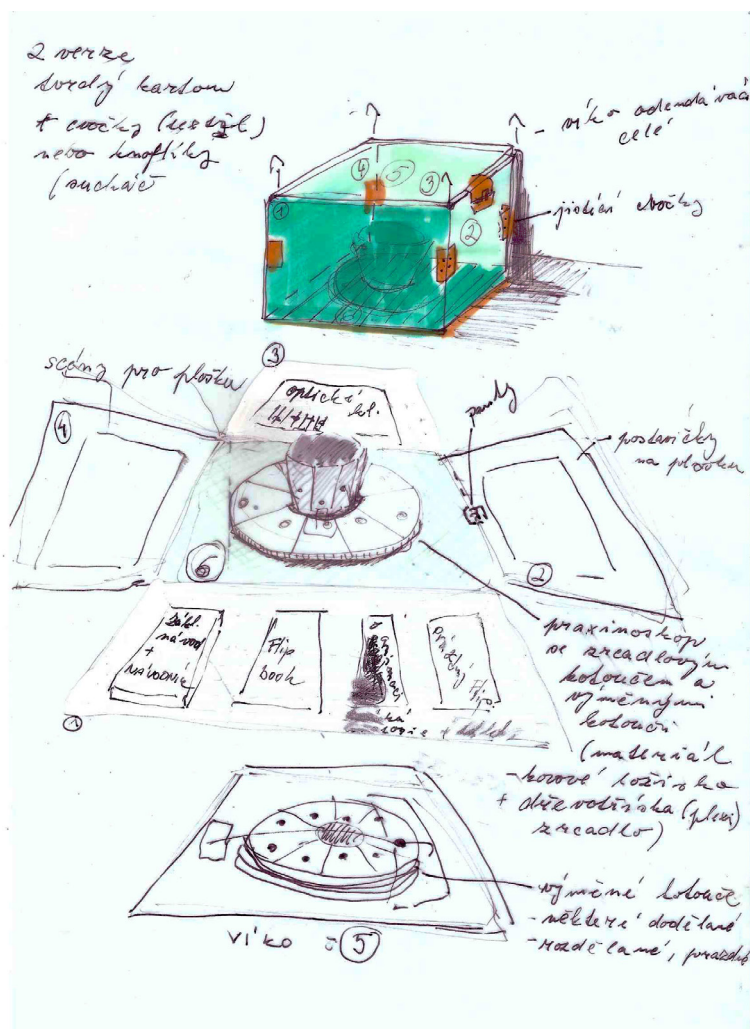 2 verze
tvrdý karton
+ cvočky (textil)
nebo knoflíky
(sucháč
- víko odendavací
celé
④
⑤
③
①
②
jistící cvočky
⑥
scény pro plošku
③
optické
④
panty
postavičky
na plošku
⑥
②
zákl.
návod
+
NÁVODNÍK
Flip
book
①
praxinoskop
se zrcadlovým
kotoučem a
výměnnými
kotouči
(materiál
- kovové ložisko
+ dřevotříska (plexi)
zrcadlo)
výměné kotouče
- některé dodělané
- rozdělané,
víko č ⑤